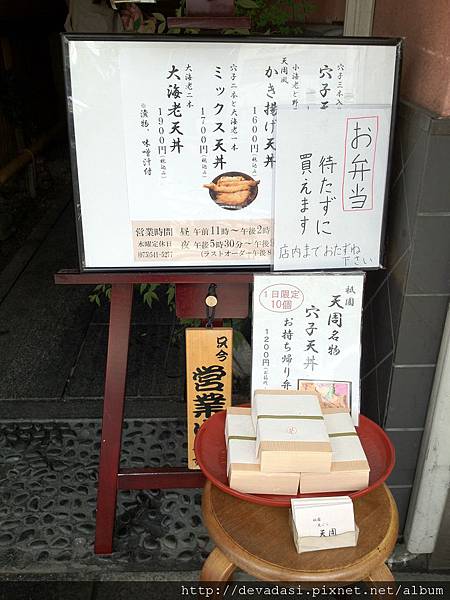 穴子二本入
穴子天
天周風
小海老と野
かき揚げ天丼
1600
穴子二本と大海老一本
ミックス天丼
1700円(税込み)
大海老二本
大海老天丼
1900円(税込み)
※漬物、味噌汁付
営業時間 昼 午前11時〜午後2時
水曜定休日 夜 午後5時30分〜午後8
(075)541-5277 (ラストオーダー午後8
お弁当
待たずに
買えます
店内までおたずね
下さい
1日限定
10個
祇園
天周名物
穴子天丼
お持ち帰り弁
1200円
只今
営業
祇園
天周
http://devadasi.pixnet.net/album